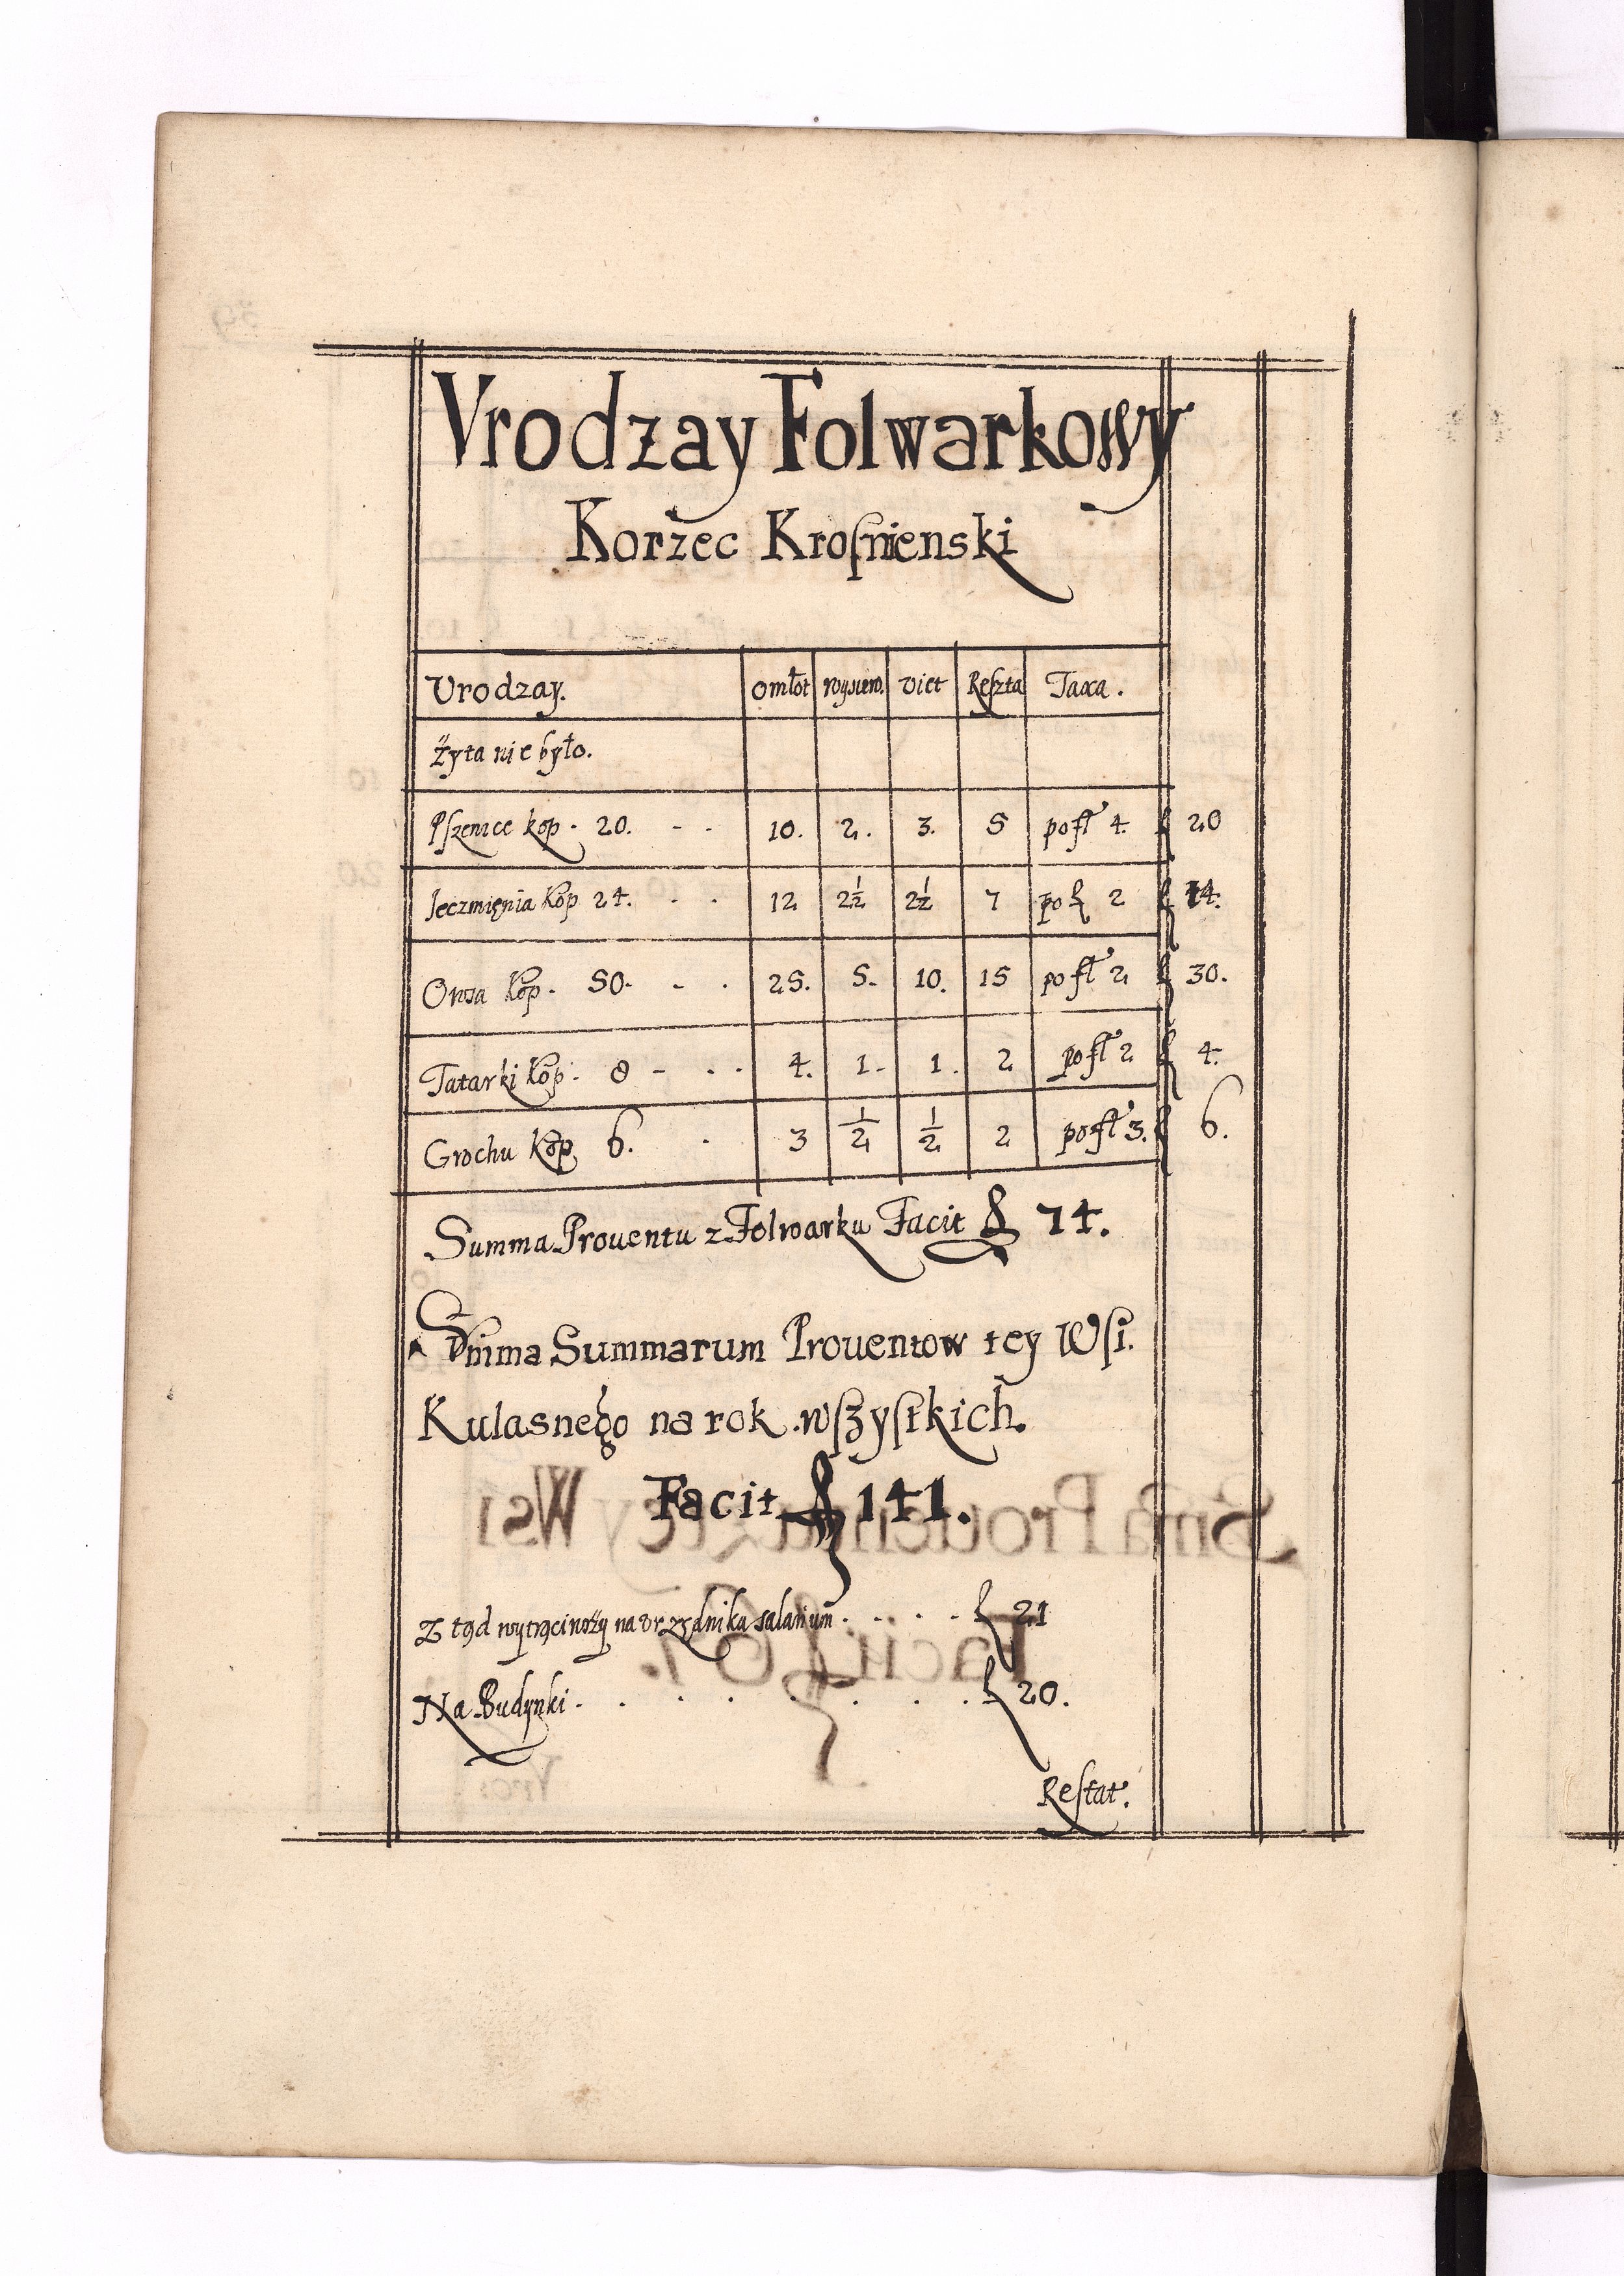 Vrodzay Folwarkowy
Korzec Krosnienski
Vrodzay. omłot wysiew. viet Reszta Taxa.
żyta nie było.
Pszenice kop. 20. - . 10. 2. 3. 5 po fl 4. fl 20
Jeczmięnia kop 24. . . 12 2½ 2½ 7 po fl 2 fl 14.
Owsa kop. 50. - . 25. 5. 10. 15 po fl 2 fl 30.
Tatarki kop. 8 - . . 4. 1. 1. 2 po fl 2 fl 4.
Grochu kop 6. . 3 ½ ½ 2 po fl 3. fl 6.
Summa Prouentu z Folwarku Facit fl 74.
Summa Summarum Prouentow tey Wsi.
Kulasnego na rok wszystkich.
Facit fl 141.
Z tąd wytrąciwszy na vrzędnika salarium . . . . . fl 21
Na Budynki. . . . . . . . fl 20.
Restat.